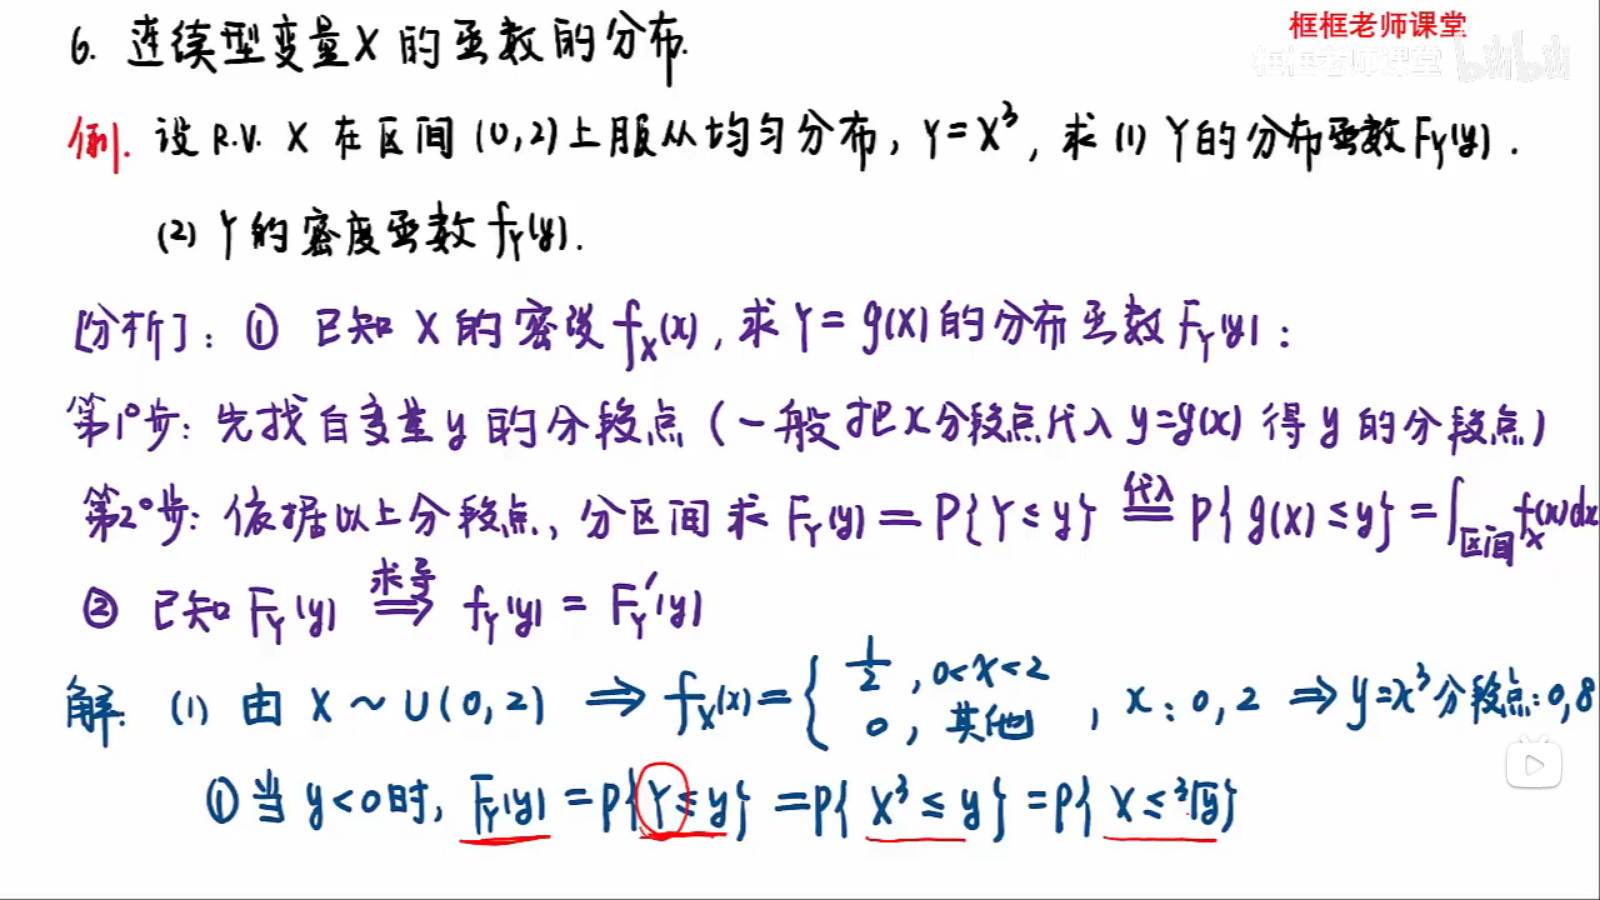 框框老师课堂
框框老师课堂 bilibili
6. 连续型变量X的函数的分布.
例. 设 R.V. X 在区间(0,2)上服从均匀分布, Y=X³, 求 (1) Y的分布函数F_Y(y).
(2) Y的密度函数 f_Y(y).
[分析]: ① 已知 X 的密度 f_X(x), 求 Y = g(X) 的分布函数 F_Y(y):
第1°步: 先找自变量 y 的分段点 (一般把x分段点代入 y=g(x) 得 y 的分段点)
第2°步: 依据以上分段点, 分区间求 F_Y(y) = P{Y≤y} 代入= P{g(X)≤y} = ∫_区间 f_X(x)dx
② 已知 F_Y(y) 求导⇒ f_Y(y) = F_Y′(y)
解: (1) 由 X ~ U(0,2) ⇒ f_X(x) = { 1/2, 0<x<2 0, 其他 , x: 0, 2 ⇒ y=x³ 分段点: 0, 8
① 当 y<0 时, F_Y(y) = P{Y≤y} = P{X³≤y} = P{X≤³√y}